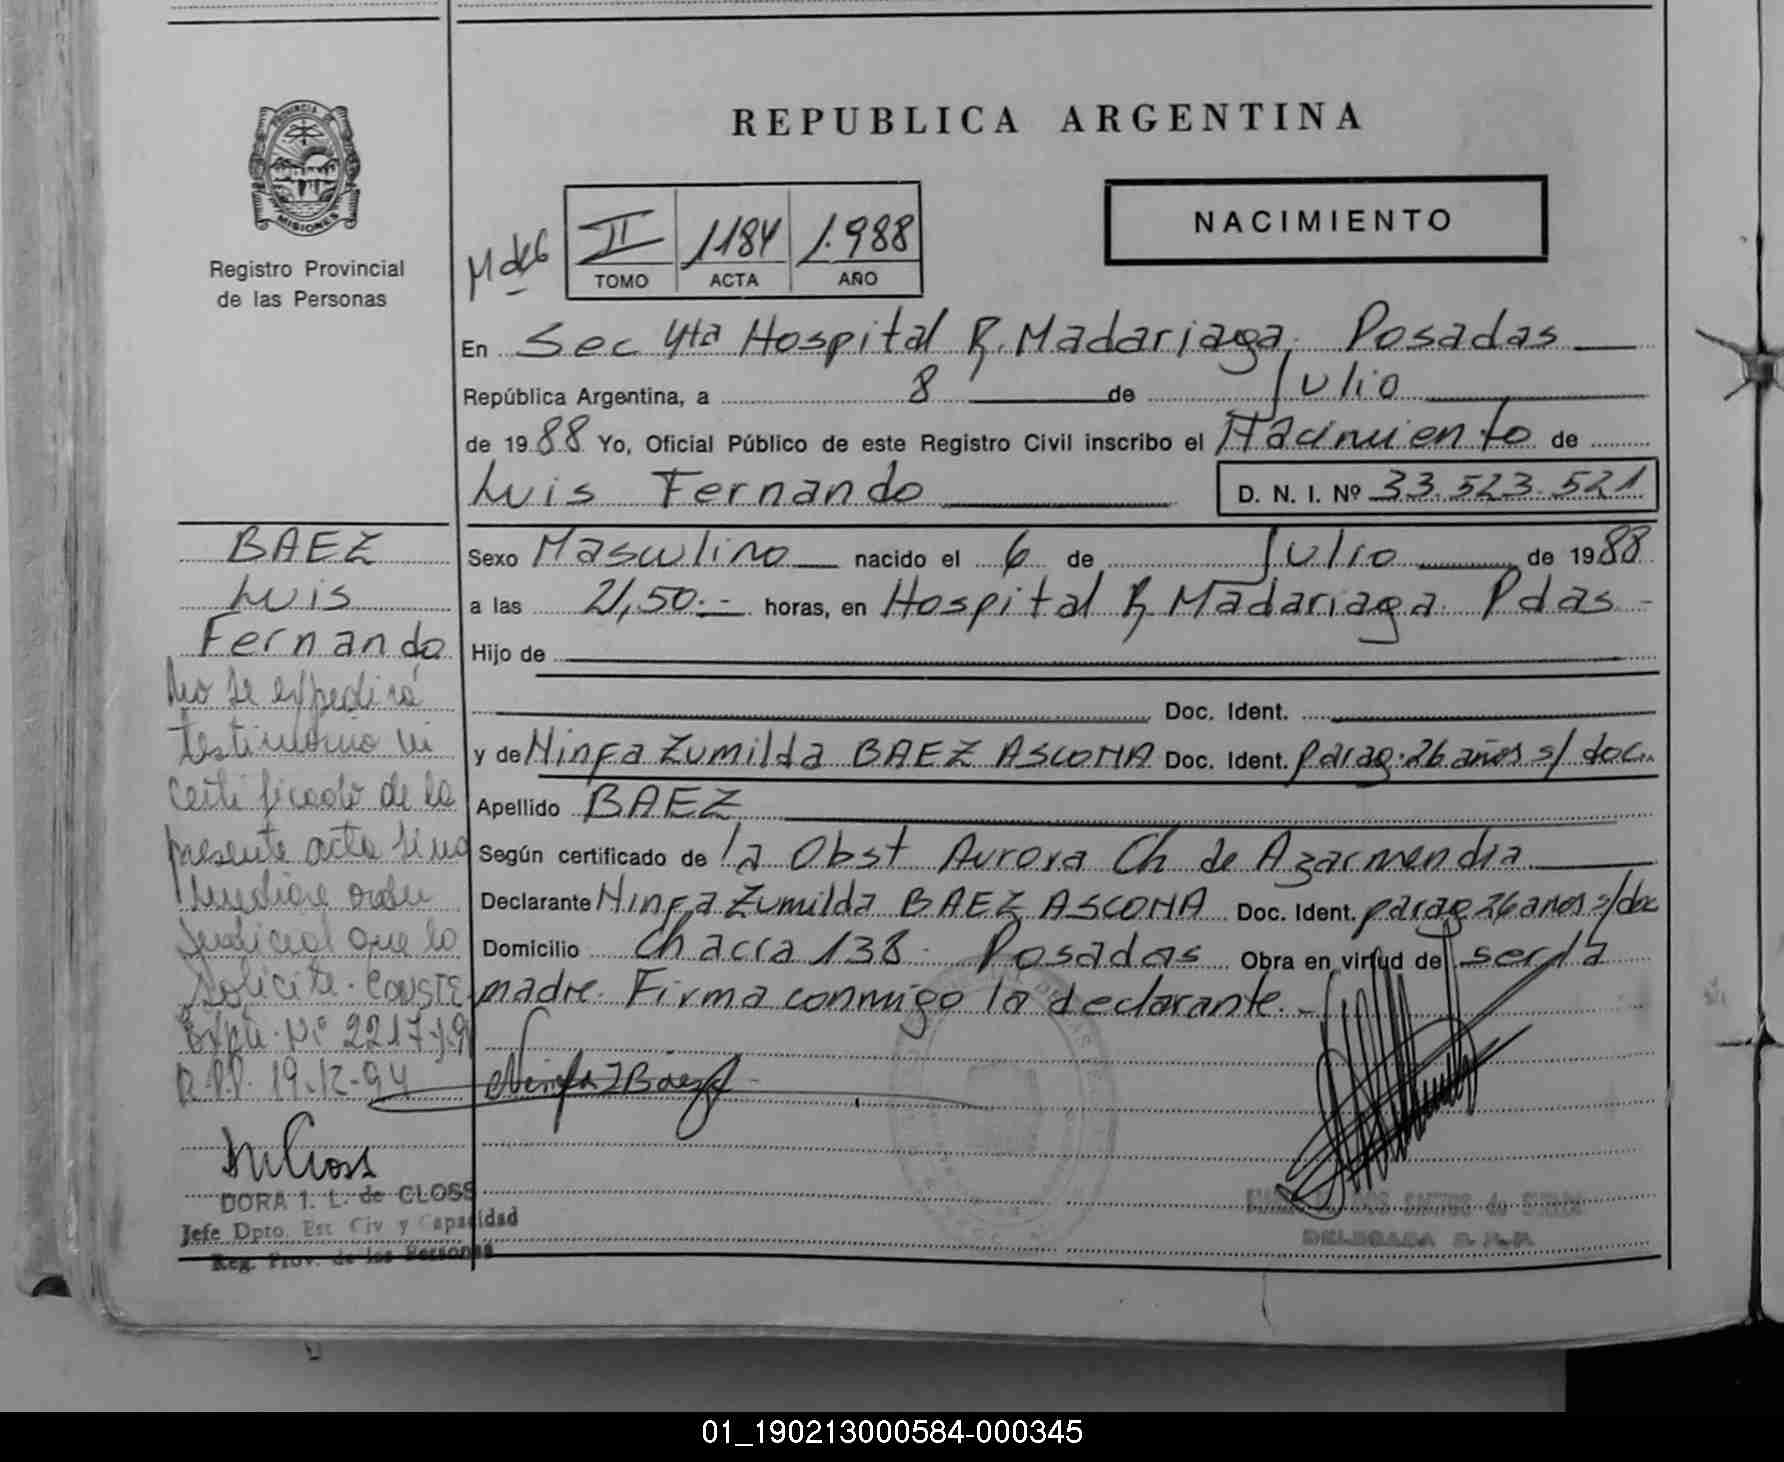 REPUBLICA ARGENTINA
PROVINCIA DE
MISIONES
Registro Provincial
de las Personas
II 1184 1.988
TOMO ACTA AÑO
NACIMIENTO
En Sec 4ta Hospital R. Madariaga. Posadas
República Argentina, a 8 de Julio
de 1988 Yo, Oficial Público de este Registro Civil inscribo el Nacimiento de
Luis Fernando D. N. I. Nº 33.523.521
BAEZ
Luis
Fernando
No se expedirá
testimonio ni
certificado de la
presente acta sino
mediare orden
Judicial que lo
solicite. CONSTE
Expte. Nº 2217
R.P.P. 19-12-94
DORA I. L. de CLOSS
Jefe Dpto. Est Civ y Capacidad
Reg. Prov. de las Personas
Sexo Masculino nacido el 6 de Julio de 1988
a las 21,50.- horas, en Hospital R. Madariaga Pdas -
Hijo de
Doc. Ident.
y de Ninfa Zumilda BAEZ ASCONA Doc. Ident. parag. 26 años s/ doc.
Apellido BAEZ
Según certificado de la Obst Aurora Ch de Azarmendia
Declarante Ninfa Zumilda BAEZ ASCONA Doc. Ident. parag 26 años s/doc
Domicilio Chacra 138 - Posadas Obra en virtud de ser la
madre. Firma conmigo la declarante.-
Ninfa Z Baez A
DOS SANTOS de
DELEGADA R.P.P.
01_190213000584-000345